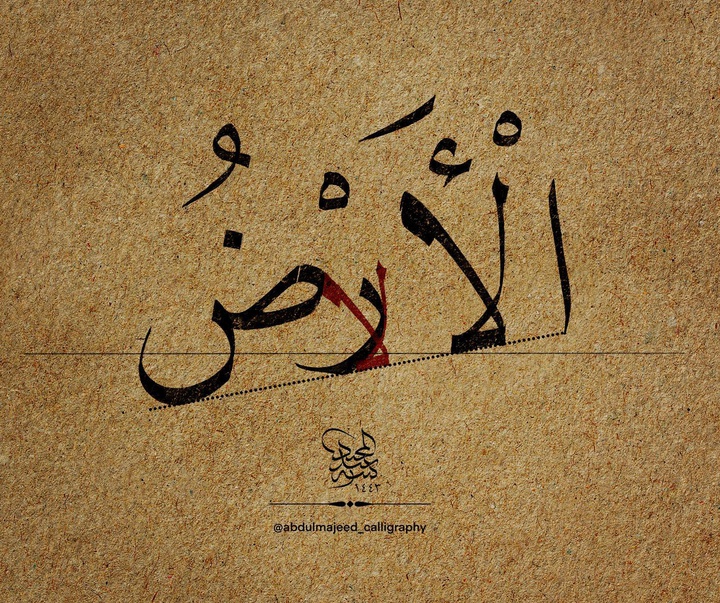 الْأَرْضُ
لا
كتبه عبدالمجيد
١٤٤٣
@abdulmajeed_calligraphy